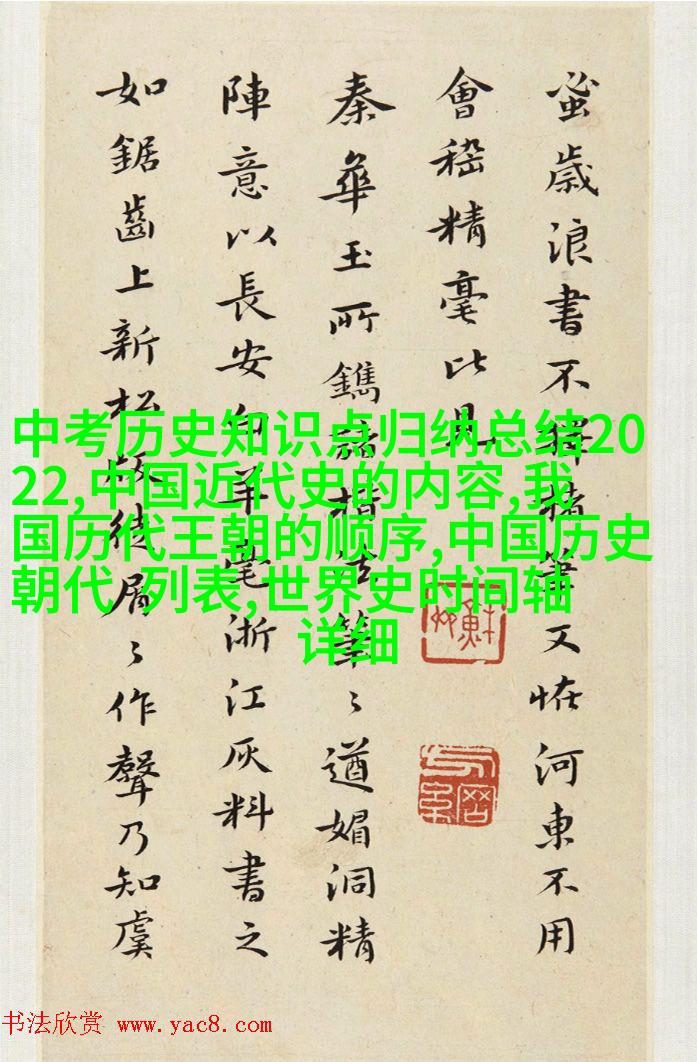 蚤歲浪書不擇楮筆又怪河東不用
會稽精毫比見
秦華玉所鐫諸楷法筆〻遒媚洞精
陣意以長安白羊毫浙江灰料書之
如鋸齒上新松板徒屑〻作聲乃知虞
中考历史知识点归纳总结20
22,中国近代史的内容,我
国历代王朝的顺序,中国历史
朝代 列表,世界史时间轴
详细
书法欣赏 www.yac8.com